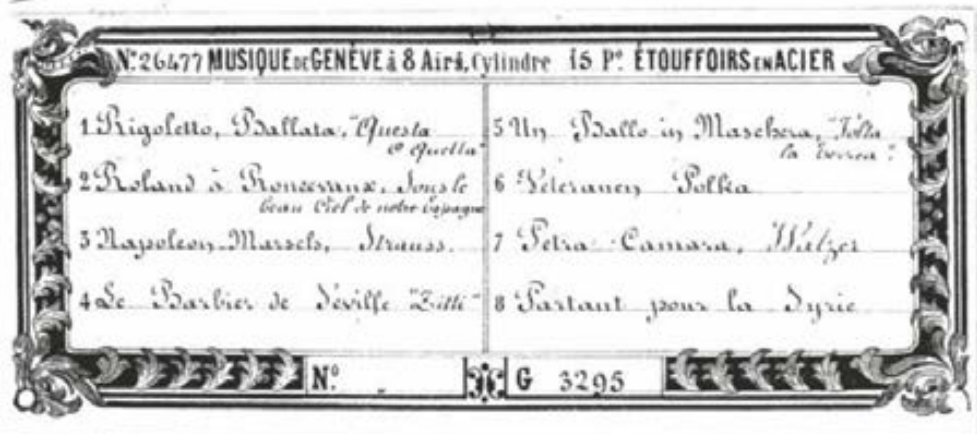 Nº 26477 MUSIQUE DE GENÈVE à 8 Airs, Cylindre 15 Pº. ÉTOUFFOIRS EN ACIER
1 Rigoletto, Ballata, "Questa
o Quella"
2 Roland à Roncevaux, Sous le
beau Ciel de notre Espagne
3 Napoleon-Marsch, Strauss.
4 Le Barbier de Séville "Zitti"
5 Un Ballo in Maschera, "Volta
la terrea".
6 Veteranen Polka
7 Petra Camara, Walzer
8 Partant pour la Syrie
Nº
G 3295